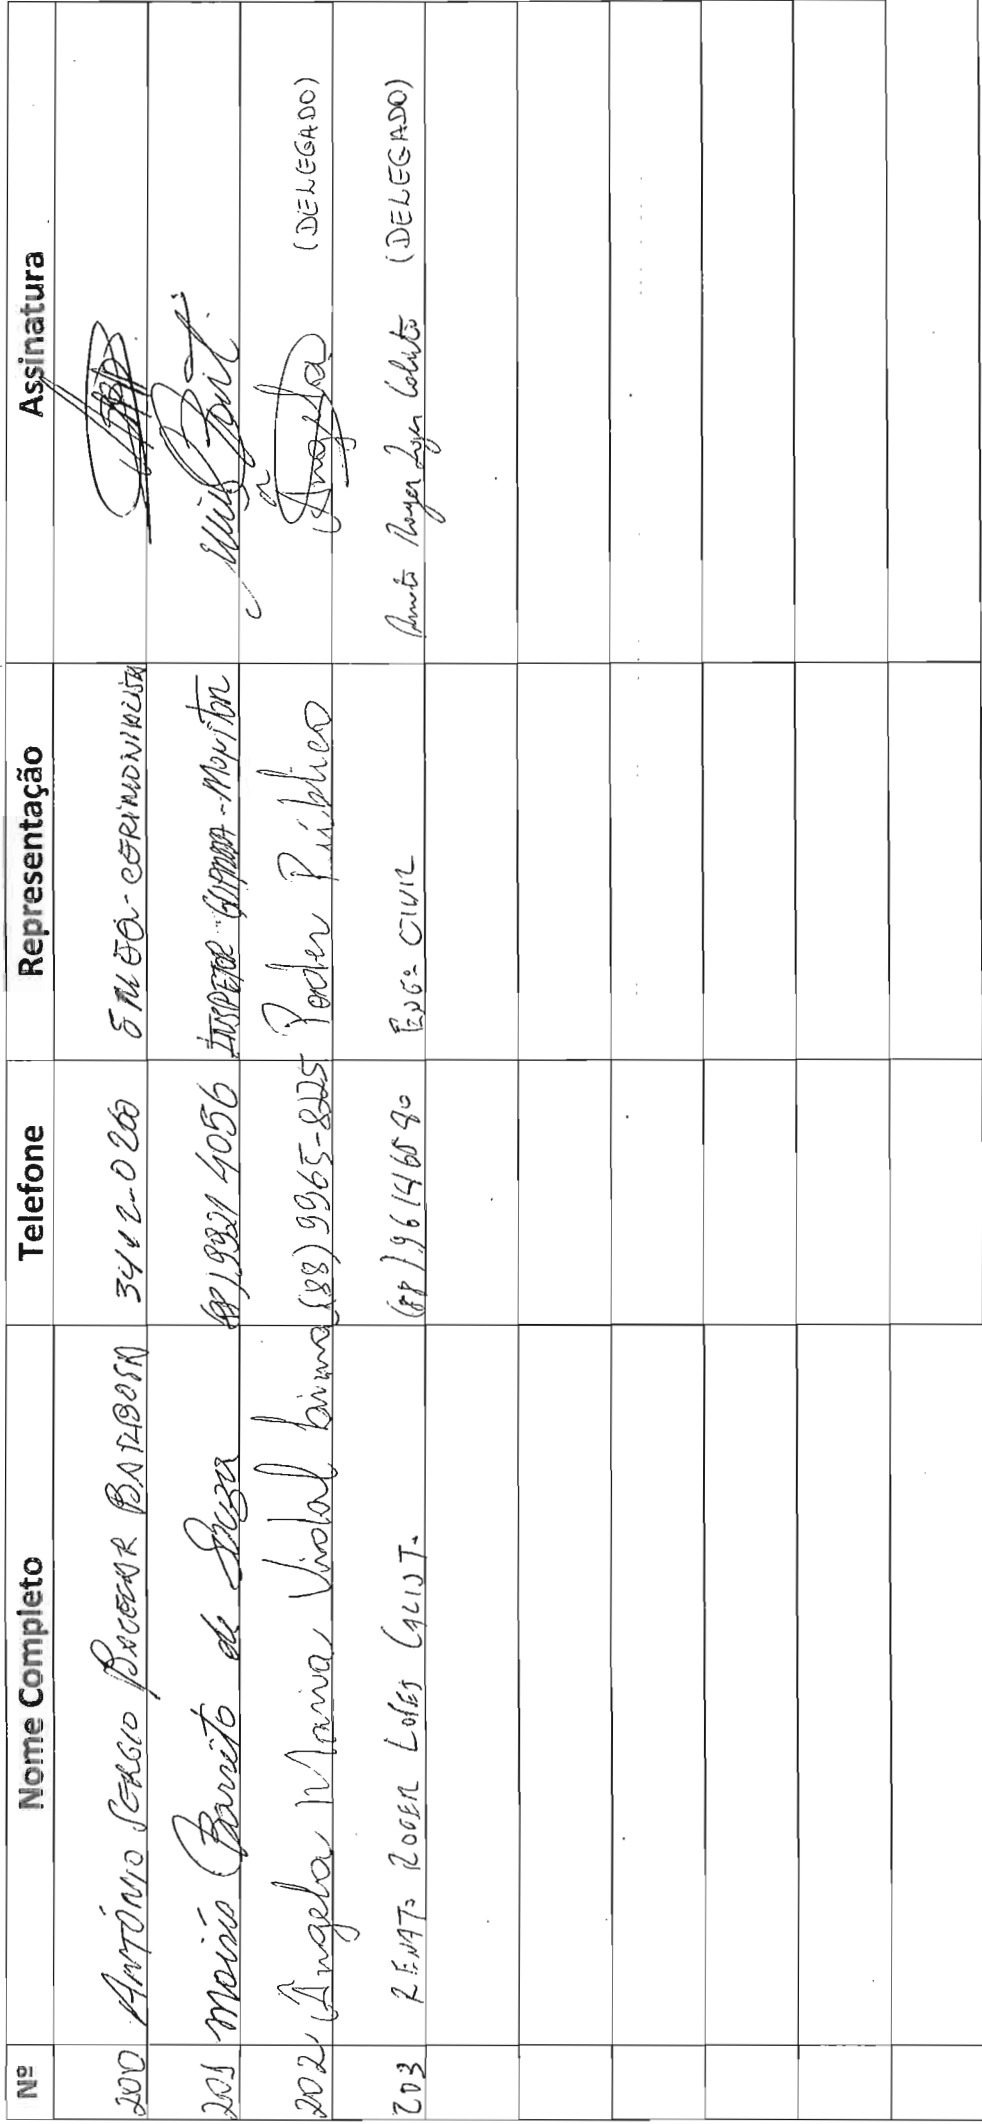 Nº Nome Completo Telefone Representação Assinatura
200 ANTÔNIO SERGIO BACELAR BARBOSA 3412-0200 CERIMONIALISTA
201 Moisés Barreto de Souza (88) 9921 4056 INSPETOR-GUARDA-MONITOR
202 Ângela Maria Vidal Lima (88) 9965-8225 Poder Público Ângela (DELEGADO)
203 RENATO ROGER LOPES CALIXTO (88) 96146890 ENGº CIVIL Renato Roger Lopes Calixto (DELEGADO)